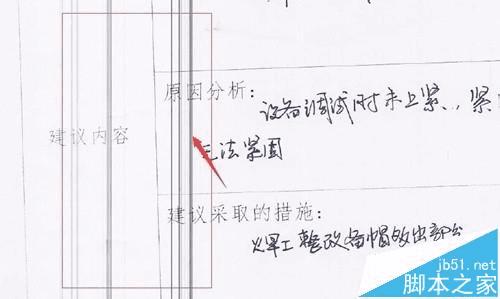 原因分析：
设备调试时未上紧、，紧
无法紧固
建议内容
建议采取的措施：
焊工整改备帽
jb51.net
脚本之家